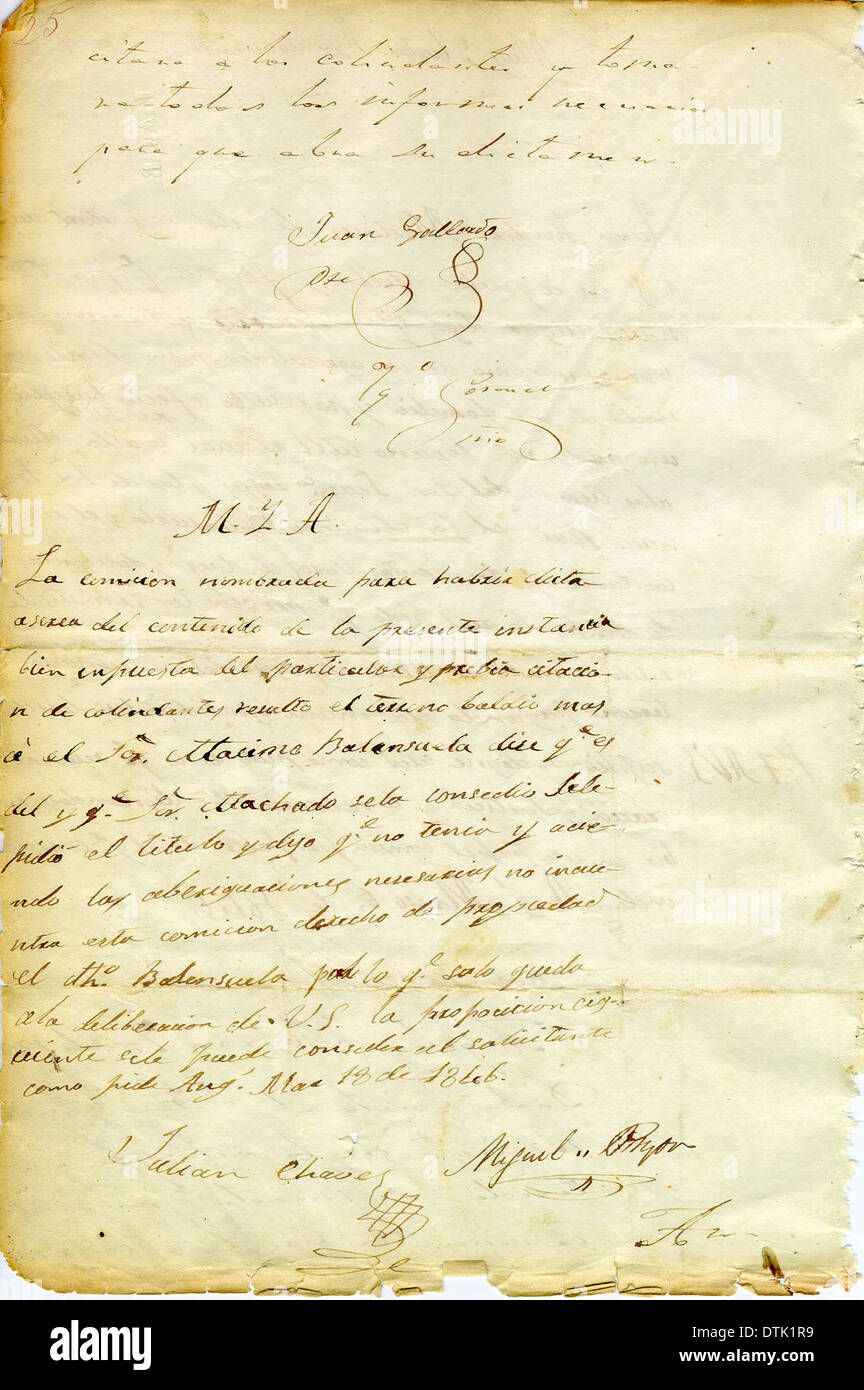 25
citara a los colindantes y toma-
ra todos los informes necesarios
para que abra su dictamen.
Juan Gallardo
Pse
Ygº Coronel
Srio
M. Y. A.
La comicion nombrada para habrir dicta
aserca del contenido de la presente instancia
bien inpuesta del particular y prebia citacio-
n de colindantes resulto el terreno baldio mas
el Sor. Macimo Balensuela dise q.e es
del y q.e Sor. Machado se la consedio se le
pidio el titulo y dijo q.e no tenia y acie-
ndo las aberiguaciones nesesarias no incue-
ntra esta comicion derecho de propiedad
el dho. Balensuela por lo q.e solo queda
a la deliberacion de V.S. la proposicion cig-
uiente se le puede conseder al solicitante
como pide Ang.s Mar 18 de 1846.
Julian Chaves
Miguel N. Pryor
alamy
Image ID: DTK1R9
www.alamy.com